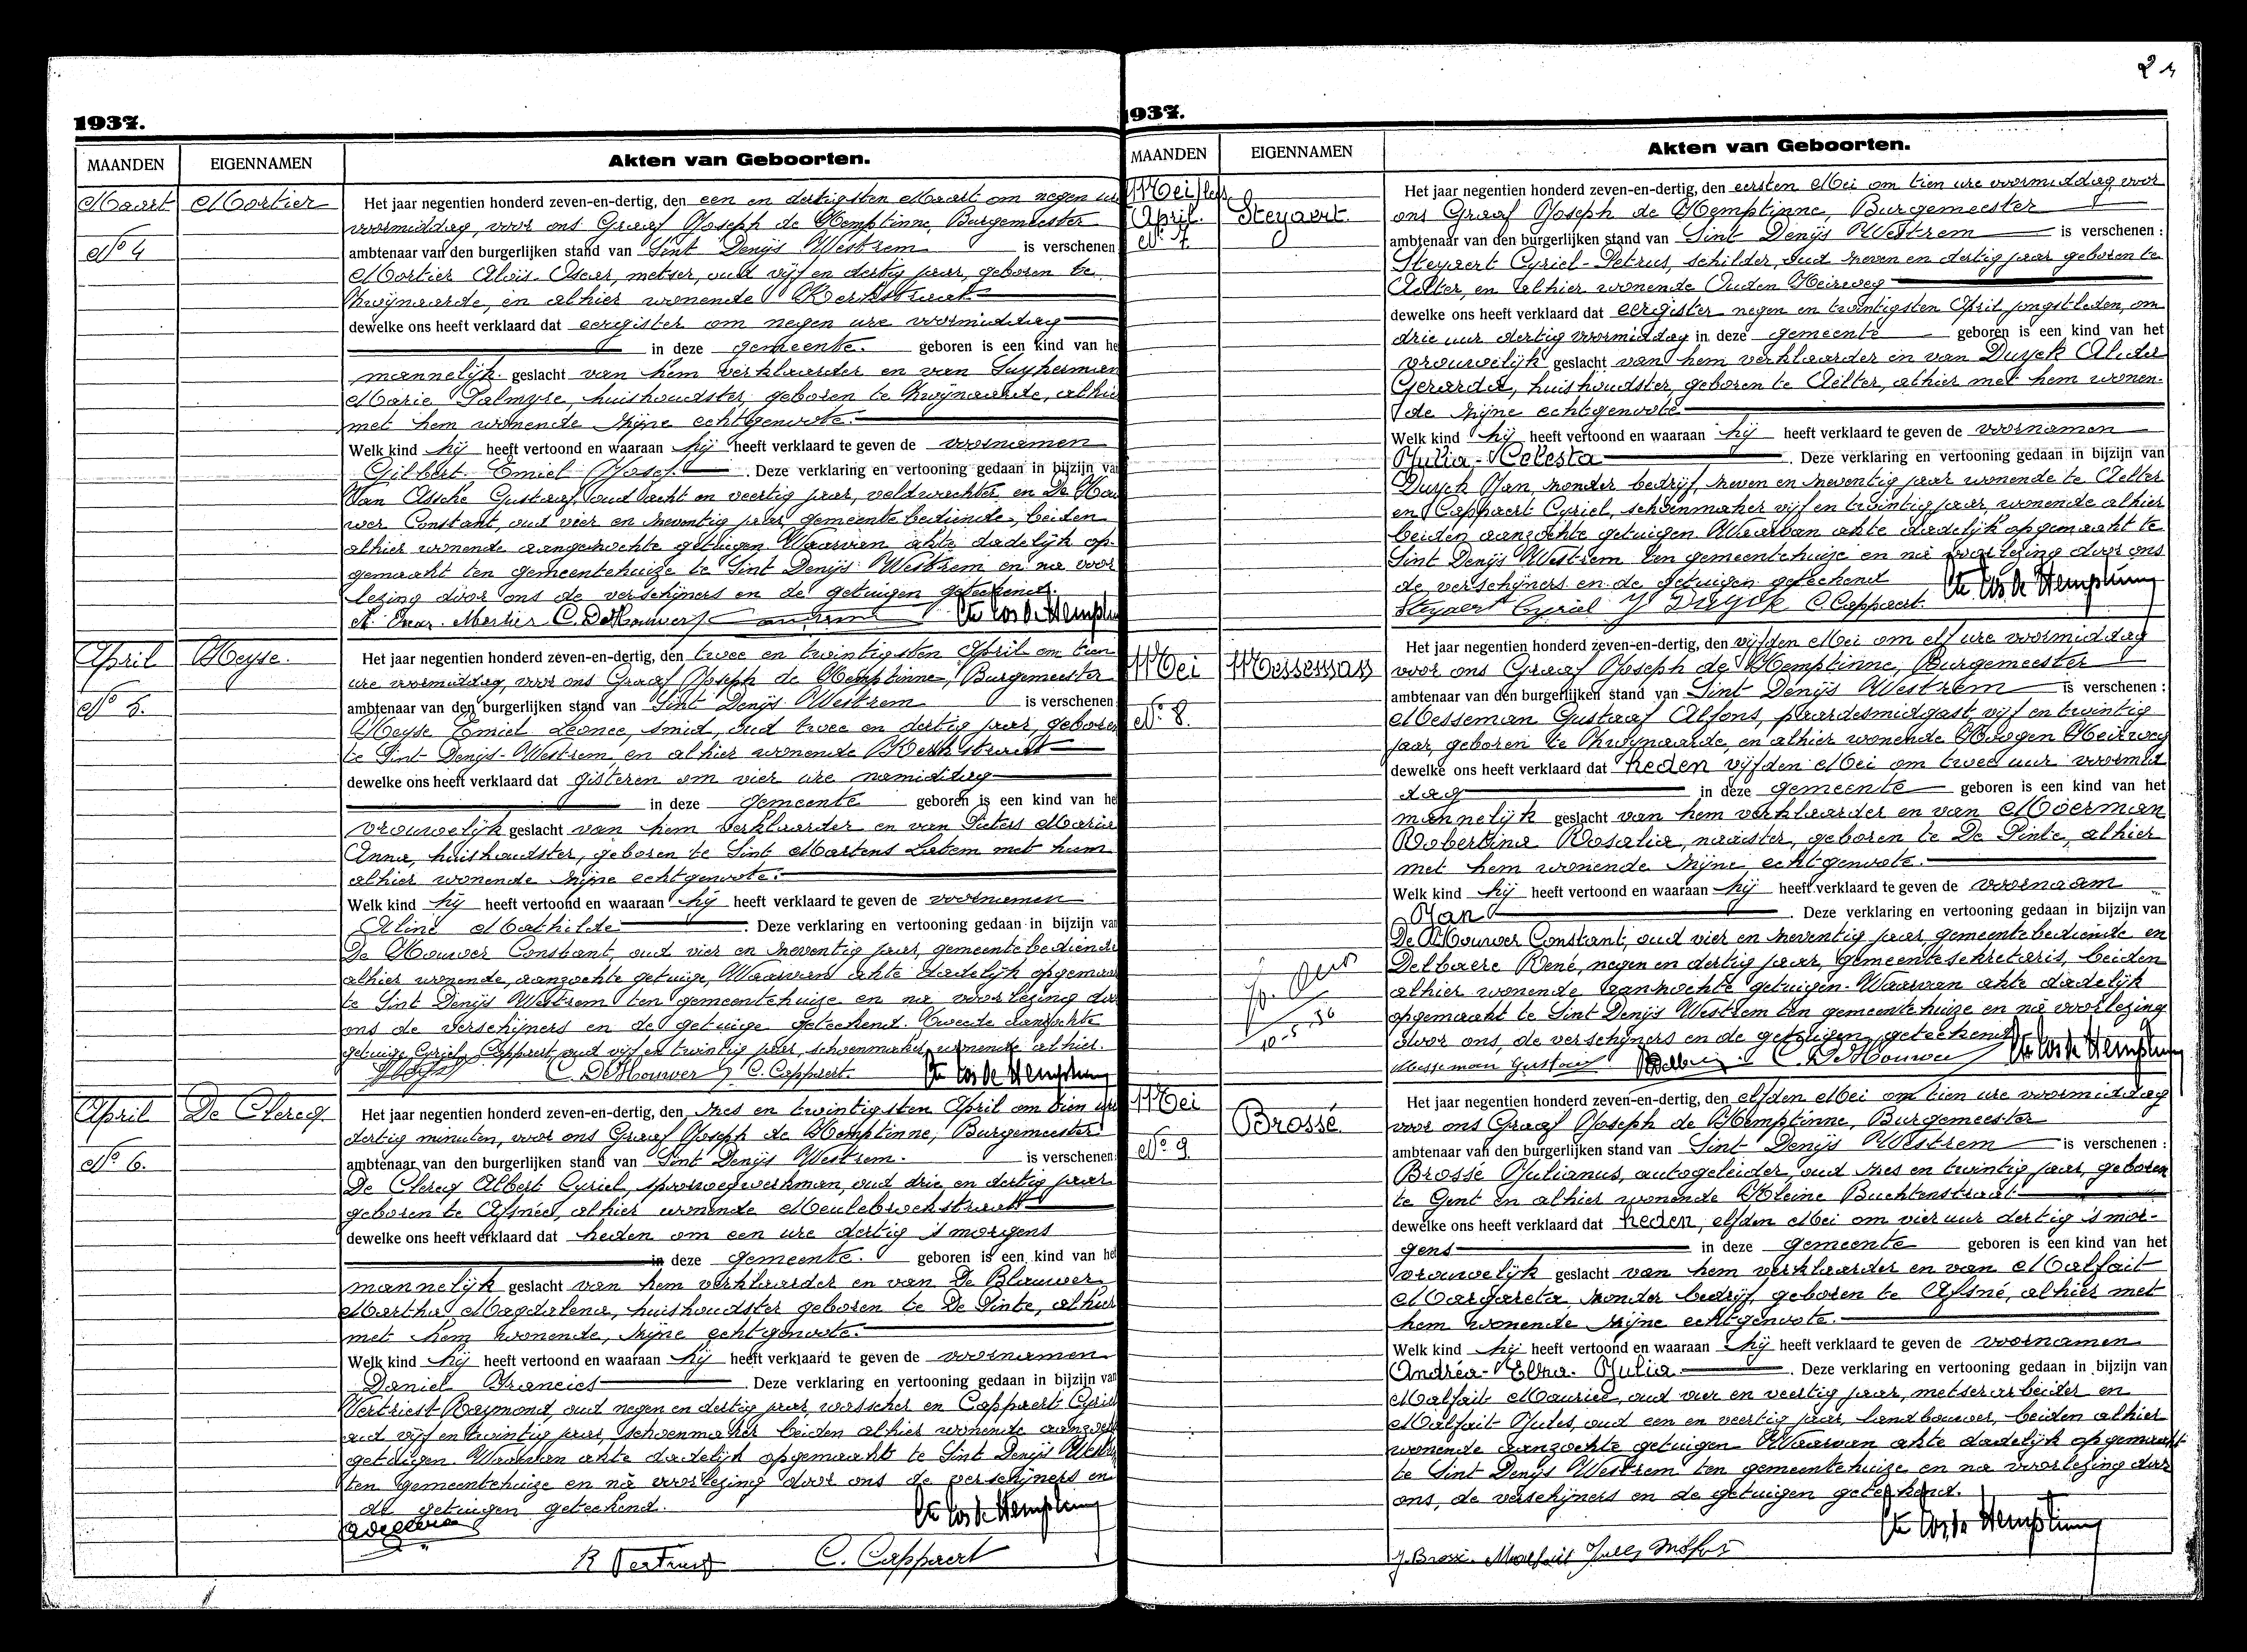 1937.
MAANDEN EIGENNAMEN Akten van Geboorten.
Maart Mortier
N° 4
Het jaar negentien honderd zeven-en-dertig, den een en dertigsten Maart om negen ure
voormiddag, voor ons Graaf Joseph de Hemptinne, Burgemeester
ambtenaar van den burgerlijken stand van Sint Denijs Westrem is verschenen
Mortier Aloïs Oscar, metser, oud vijf en dertig jaar, geboren te
Zwijnaarde, en alhier wonende Kerkstraat
dewelke ons heeft verklaard dat eergister om negen ure voormiddag
in deze gemeente. geboren is een kind van he
mannelijk geslacht van hem verklaarder en van
Marie Palmyre, huishoudster, geboren te Zwijnaarde, alhier
met hem wonende zijne echtgenoote.
Welk kind hij heeft vertoond en waaraan hij heeft verklaard te geven de voornamen
Gilbert Emiel Josef. Deze verklaring en vertooning gedaan in bijzijn van
Van Assche Gustaaf, oud acht en veertig jaar, veldwachter en De Hou
wer Constant, oud vier en zeventig jaar, gemeentebediende, beiden
alhier wonende aangezochte getuigen. Waarvan akte dadelijk op-
gemaakt ten gemeentehuize te Sint Denijs Westrem en na voor
lezing door ons de verschijners en de getuigen geteekend.
A. Oscar. Mortier C. DeHouwer Cte Jos de Hemptinne
April Heyse.
N° 5.
Het jaar negentien honderd zeven-en-dertig, den twee en twintigsten April om tien
ure voormiddag, voor ons Graaf Joseph de Hemptinne, Burgemeester
ambtenaar van den burgerlijken stand van Sint Denijs Westrem is verschenen
Heyse Emiel Leonce, smid, oud twee en dertig jaar, geboren
te Sint-Denijs-Westrem, en alhier wonende Kerkstraat
dewelke ons heeft verklaard dat gisteren om vier ure namiddag
in deze gemeente geboren is een kind van he
vrouwelijk geslacht van hem verklaarder en van Pieters Maria
Anna, huishoudster, geboren te Sint Martens Latem met hem
alhier wonende zijne echtgenoote.
Welk kind hij heeft vertoond en waaraan hij heeft verklaard te geven de voornamen
Aline Mathilde Deze verklaring en vertooning gedaan in bijzijn van
De Houwer Constant, oud vier en zeventig jaar, gemeentebediende
alhier wonende, aanzochte getuige, Waarvan akte dadelijk opgemaak
te Sint Denijs Westrem ten gemeentehuize en na voorlezing door
ons de verschijners en de getuige geteekend. Tweede aanzochte
getuige Cyriel Cappaert oud vijf en twintig jaar, schoenmaker, wonende alhier.
C. DeHouwer C. Cappaert. Cte Jos de Hemptinne
April De Clercq
N° 6.
Het jaar negentien honderd zeven-en-dertig, den zes en twintigsten April om tien ure
dertig minuten, voor ons Graaf Joseph de Hemptinne, Burgemeester
ambtenaar van den burgerlijken stand van Sint Denijs Westrem. is verschenen
De Clercq Albert Cyriel, spoorwegwerkman, oud drie en dertig jaar
geboren te Afsneé, alhier wonende Meulebroekstraat
dewelke ons heeft verklaard dat heden om een ure dertig 's morgens
in deze gemeente. geboren is een kind van he
mannelijk geslacht van hem verklaarder en van De Blauwer
Martha Magdalena, huishoudster geboren te De Pinte, alhier
met hem wonende, zijne echtgenoote.
Welk kind hij heeft vertoond en waaraan hij heeft verklaard te geven de voornamen
Daniel Francies Deze verklaring en vertooning gedaan in bijzijn van
Vertriest Raymond, oud negen en dertig jaar, wasscher en Cappaert Cyriel
oud vijf en twintig jaar, schoenmaker beiden alhier wonende aanzochte
getuigen. Waarvan akte dadelijk opgemaakt te Sint Denijs Westrem
ten gemeentehuize en na voorlezing door ons de verschijners en
de getuigen geteekend.
Cte Jos de Hemptinne
R Vertriest C. Cappaert
1937.
MAANDEN EIGENNAMEN Akten van Geboorten.
April. Steyaert
N° 7
Het jaar negentien honderd zeven-en-dertig, den eersten Mei om tien ure voormiddag voor
ons Graaf Joseph de Hemptinne, Burgemeester
ambtenaar van den burgerlijken stand van Sint Denijs Westrem is verschenen :
Steyaert Cyriel-Petrus, schilder, oud zeven en dertig jaar geboren te
Aelter, en alhier wonende Ouden Heirweg
dewelke ons heeft verklaard dat eergister negen en twintigsten April jongstleden, om
drie uur dertig voormiddag in deze gemeente geboren is een kind van het
vrouwelijk geslacht van hem verklaarder en van Duyck Alida
Gerarda, huishoudster, geboren te Aelter, alhier met hem wonen-
de zijne echtgenoote.
Welk kind hij heeft vertoond en waaraan hij heeft verklaard te geven de voornamen
Julia-Celesta. Deze verklaring en vertooning gedaan in bijzijn van
Duyck Jan, zonder bedrijf, zeven en zeventig jaar wonende te Aelter
en Cappaert Cyriel, schoenmaker vijf en twintig jaar, wonende alhier
beiden aanzochte getuigen. Waarvan akte dadelijk opgemaakt te
Sint Denijs Westrem ten gemeentehuize en na voorlezing door ons
de verschijners en de getuigen geteekend
Steyaert Cyriel J Duyck C. Cappaert. Cte Jos de Hemptinne
Mei Messeman
N° 8.
10-5-56
Het jaar negentien honderd zeven-en-dertig, den vijfden Mei om elf ure voormiddag
voor ons Graaf Joseph de Hemptinne, Burgemeester
ambtenaar van den burgerlijken stand van Sint Denijs Westrem is verschenen :
Messeman Gustaaf Alfons, paardesmidgast, vijf en twintig
jaar, geboren te Zwijnaarde, en alhier wonende Hoogen Heirweg
dewelke ons heeft verklaard dat heden vijfden Mei om twee uur voormid
dag in deze gemeente geboren is een kind van het
mannelijk geslacht van hem verklaarder en van Moerman
Robertina Rosalia, naaister, geboren te De Pinte, alhier
met hem wonende zijne echtgenoote.
Welk kind hij heeft vertoond en waaraan hij heeft verklaard te geven de voornaam
Jan. Deze verklaring en vertooning gedaan in bijzijn van
De Houwer Constant, oud vier en zeventig jaar gemeentebediende en
Delbaere René, negen en dertig jaar, gemeentesekretaris, beiden
alhier wonende aanzochte getuigen. Waarvan akte dadelijk
opgemaakt te Sint Denijs Westrem ten gemeentehuize en na voorlezing
door ons, de verschijners en de getuigen geteekend
Messeman Gustaaf C. DeHouwer Cte Jos de Hemptinne
Mei Brossé
N° 9
Het jaar negentien honderd zeven-en-dertig, den elfden Mei om tien ure voormiddag
voor ons Graaf Joseph de Hemptinne, Burgemeester
ambtenaar van den burgerlijken stand van Sint Denijs Westrem is verschenen :
Brossé Julianus, autogeleider, oud zes en twintig jaar, geboren
te Gent en alhier wonende Kleine Buchtenstraat
dewelke ons heeft verklaard dat heden, elfden Mei om vier uur dertig 's mor-
gens in deze gemeente geboren is een kind van het
vrouwelijk geslacht van hem verklaarder en van Malfait
Margareta, zonder bedrijf, geboren te Afsné, alhier met
hem wonende zijne echtgenoote.
Welk kind hij heeft vertoond en waaraan hij heeft verklaard te geven de voornamen
Andréa-Elza-Julia. Deze verklaring en vertooning gedaan in bijzijn van
Malfait Maurice, oud vier en veertig jaar, metserarbeider en
Malfait Jules, oud een en veertig jaar, landbouwer, beiden alhier
wonende aanzochte getuigen. Waarvan akte dadelijk opgemaakt
te Sint Denijs Westrem ten gemeentehuize en na voorlezing door
ons, de verschijners en de getuigen geteekend.
Cte Jos de Hemptinne
J. Brossé. Malfait Jules